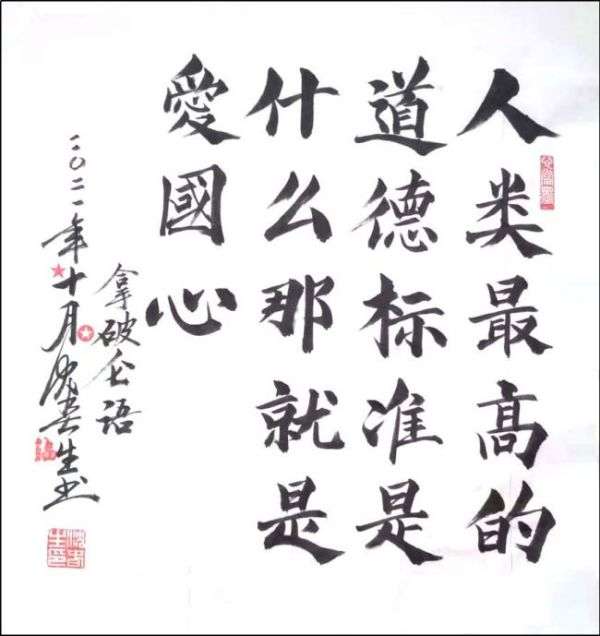 人类最高的
道德标准是
什么那就是
愛國心
拿破仑语
二〇二一年十月沈岳生书